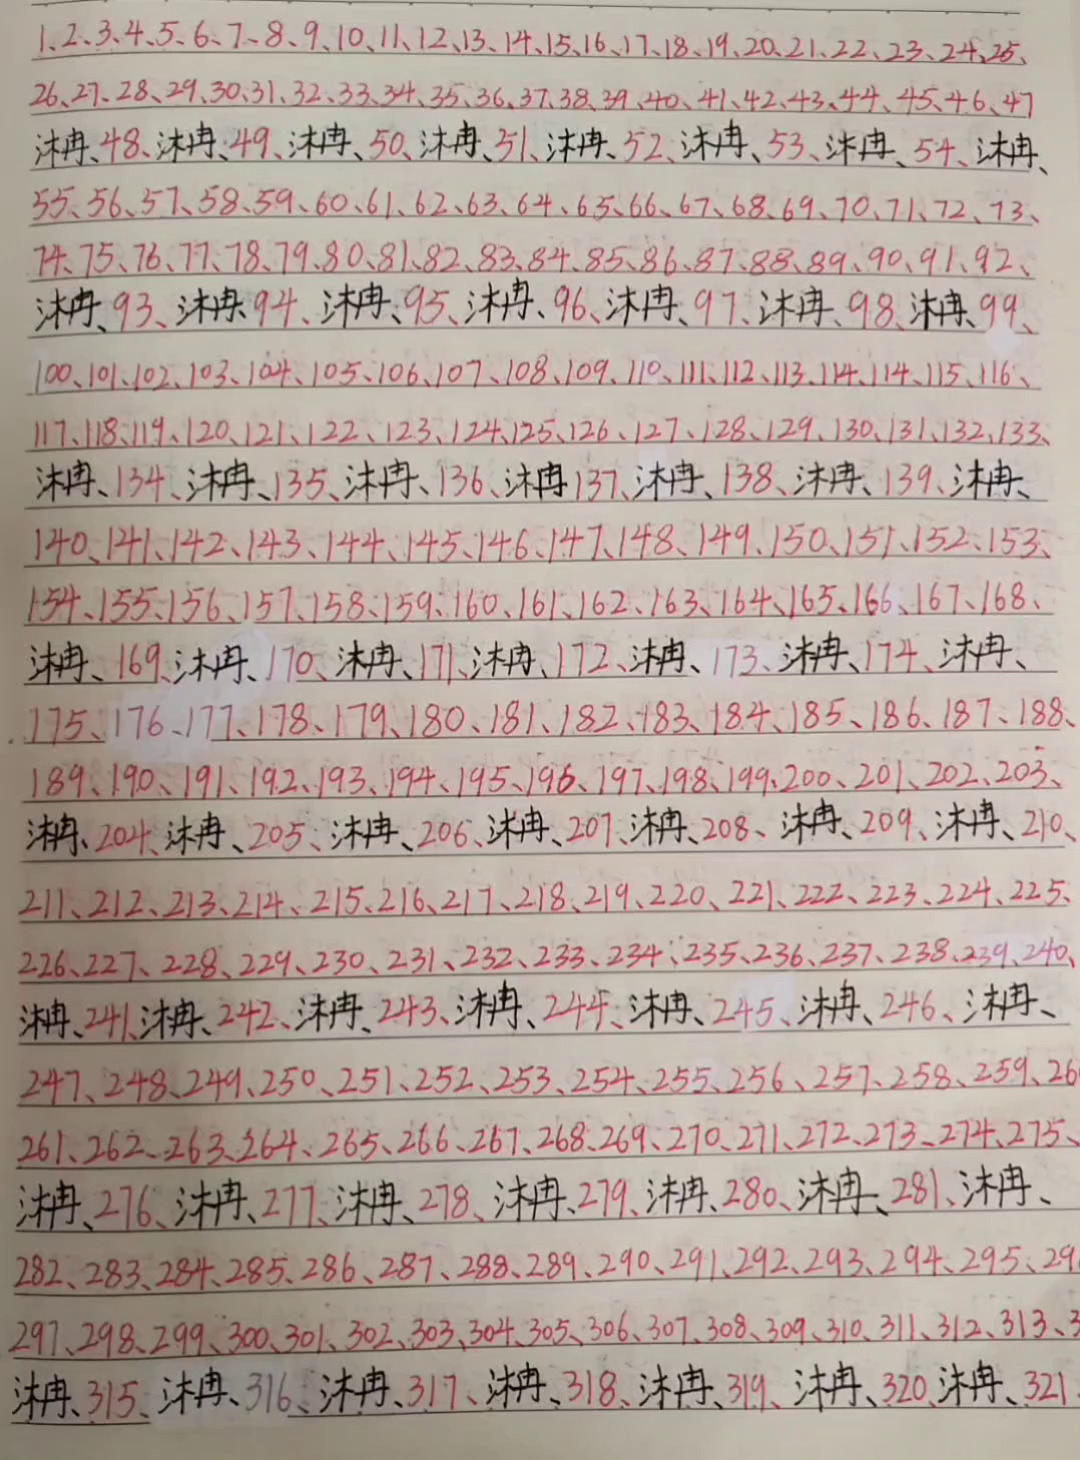 1、2、3、4、5、6、7、8、9、10、11、12、13、14、15、16、17、18、19、20、21、22、23、24、25、
26、27、28、29、30、31、32、33、34、35、36、37、38、39、40、41、42、43、44、45、46、47
沐冉、48、沐冉、49、沐冉、50、沐冉、51、沐冉、52、沐冉、53、沐冉、54、沐冉、
55、56、57、58、59、60、61、62、63、64、65、66、67、68、69、70、71、72、73、
74、75、76、77、78、79、80、81、82、83、84、85、86、87、88、89、90、91、92、
沐冉、93、沐冉、94、沐冉、95、沐冉、96、沐冉、97、沐冉、98、沐冉、99、
100、101、102、103、104、105、106、107、108、109、110、111、112、113、114、114、115、116、
117、118、119、120、121、122、123、124、125、126、127、128、129、130、131、132、133、
沐冉、134、沐冉、135、沐冉、136、沐冉137、沐冉、138、沐冉、139、沐冉、
140、141、142、143、144、145、146、147、148、149、150、151、152、153、
154、155、156、157、158、159、160、161、162、163、164、165、166、167、168、
沐冉、169、沐冉、170、沐冉、171、沐冉、172、沐冉、173、沐冉、174、沐冉、
175、176、177、178、179、180、181、182、183、184、185、186、187、188、
189、190、191、192、193、194、195、196、197、198、199、200、201、202、203、
沐冉、204、沐冉、205、沐冉、206、沐冉、207、沐冉、208、沐冉、209、沐冉、210、
211、212、213、214、215、216、217、218、219、220、221、222、223、224、225、
226、227、228、229、230、231、232、233、234、235、236、237、238、239、240、
沐冉、241、沐冉、242、沐冉、243、沐冉、244、沐冉、245、沐冉、246、沐冉、
247、248、249、250、251、252、253、254、255、256、257、258、259、26
261、262、263、264、265、266、267、268、269、270、271、272、273、274、275、
沐冉、276、沐冉、277、沐冉、278、沐冉、279、沐冉、280、沐冉、281、沐冉、
282、283、284、285、286、287、288、289、290、291、292、293、294、295、29
297、298、299、300、301、302、303、304、305、306、307、308、309、310、311、312、313、3
沐冉、315、沐冉、316、沐冉、317、沐冉、318、沐冉、319、沐冉、320、沐冉、321